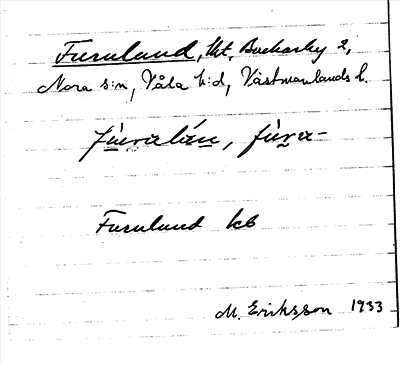 Furulund, lht, Buckarby 2,
Nora s:n, Våla h:d, Västmanlands l.
fùralún, fùra-
Furulund kb
M. Eriksson 1933